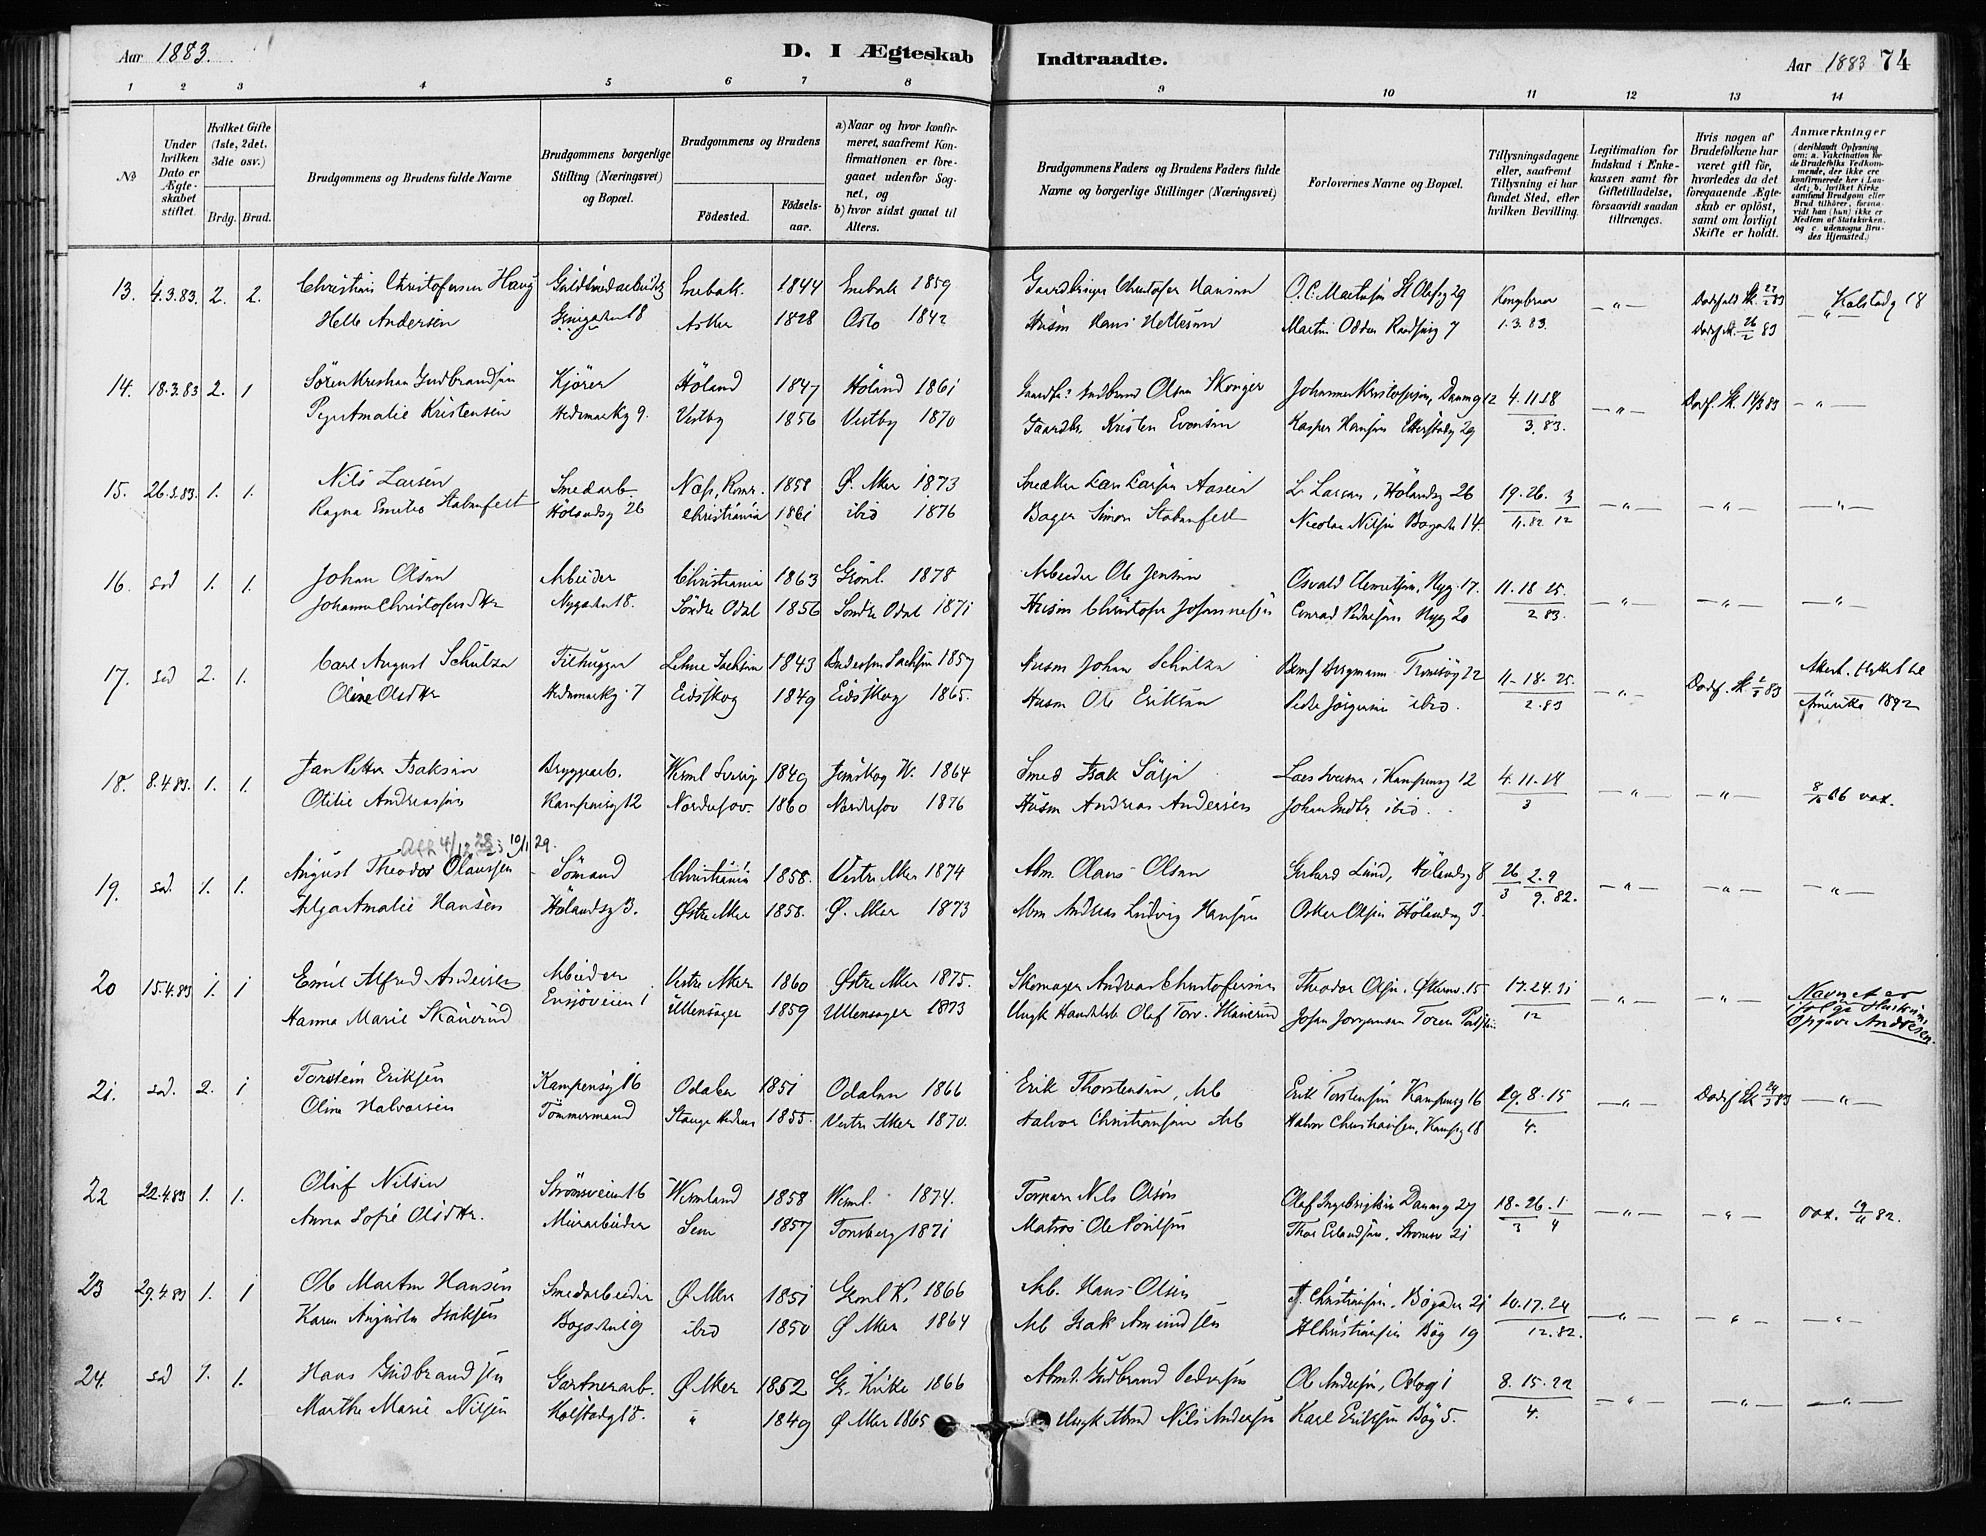 Aar 1883.
D. I Ægteskab Indtraadte.
Aar 1883 74
1 2 3 4 5 6 7 8 9 10 11 12 13 14
No
Under hvilken Dato er Ægteskabet stiftet.
Hvilket Gifte (1ste, 2det, 3die osv.)
Brdg. Brud.
Brudgommens og Brudens fulde Navne
Brudgommens borgerlige Stilling (Næringsvei) og Bopæl.
Brudgommens og Brudens
Fødested.
Fødselsaar.
a) Naar og hvor konfirmeret, saafremt Konfirmationen er foregaaet udenfor Sognet, og
b) hvor sidst gaaet til Alters.
Brudgommens Faders og Brudens Faders fulde Navne og borgerlige Stillinger (Næringsvei)
Forlovernes Navne og Bopæl.
Tillysningsdagene eller, saafremt Tillysning ei har fundet Sted, efter hvilken Bevilling.
Legitimation for Indskud i Enkekassen samt for Giftetilladelse, forsaavidt saadan tiltrænges.
Hvis nogen af Brudefolkene har været gift før, hvorledes da det foregaaende Ægteskab er opløst, samt om lovligt Skifte er holdt.
Anmærkninger (deriblandt Oplysning om: a. Vakcination for de Brudefolks Vedkommende, der ikke ere konfirmerede her i Landet; b. hvilket Kirkesamfund Brudgom eller Brud tilhører, forsaavidt han (hun) ikke er Medlem af Statskirken, og c. udensogns Brudes Hjemsted.)
13. 4.3.83. 2. 2. Christian Christofersen Haug Guldsmedarbeider Enebak 1844 Enebak 1859 Gaardbruger Christofer Hansen O. C. Martinsen St Olafsg 29 Kongebrev Kolstadg 18
Helle Andersen 18 Asker 1828 Oslo 1842 Husm Hans Martin Odden 7 1.3.83.
14. 18.3.83 2. 1 Søren Kristian Gudbrandsen Kjører Høland 1847 Høland 1861 Gudbrand Olsen Johannes Kristofersen, Danmg 12 4. 11. 18 Dødsf. Sk. 83
Amalie Kristensen Hedemarkg 9. Vestby 1856 Vestby 1870 Gaardbr Kristen Evensen Kasper Hansen Etterstadg 29 3. 83.
15. 26.3.83. 1. 1. Nils Larsen Smedarb. Næs, Romr. 1858 Ø. Aker 1873 Snedker Lars Larsen Aasein L. Larsen, Hølandsg 26 19. 26. 3
Ragna Emilie Stabenfelt Hølandsg 26 Christiania 1861 ibid 1876 Bager Simon Stabenfelt Nicolai Nilsen Bøgata 14. 11.82 12
16. sad 1. 1. Johan Olsen Arbeider Christiania 1863 Grønl. 1878 Arbeider Ole Jensen Osvald Clemetsen, Nyg. 17. 11. 18 25.
Johanne Christofersdtr Nygaden 18. Søndre Odal 1856 Søndre Odal 1871 Husm Christofer Johannesen Conrad Pedersen Nyg 20 2 83.
17. sad 2. 1. Carl August Schulze Tilhugger Sachsen 1843 Sachsen 1857 Husm Johan Schulze Bergmann Tromsøg 22 11- 18- 25. Dødsf. Sk. 83
Oline Olsdtr Hedemarkg. 7 Eidsskog 1849 Eidsskog 1865. Husm Ole Eriksen Peder Jørgensen ibid. 2. 83 Amerika 1892
18. 8.4.83. 1. 1. Jan Petter Isaksen Bryggearb. Verml Sverig 1849 Jernskog V. 1864 Smed Isak Lars Iversen, Kampensg 12 4. 11. 18
Otilie Andreassen Kampensg 12 Nordrehov. 1860 Nordrehov 1876 Husm Andreas Andersen Johan ibid. 3 66 vax.
19. sad. 1. 1. August Theodor Olaussen Sømand Christiania 1858. Vestre Aker 1874 Abm. Olaus Olsen Gerhard Lund, Hølandsg 8 26 2. 9
Helga Amalie Hansen Hølandsg 3. Østre Aker 1858. Ø. Aker 1873 Abm Andreas Ludvig Hansen Oskar Olsen Hølandsg 3. 3 9. 82.
20 15.4.83 1. 1 Emil Alfred Andersen Arbeider Vestre Aker 1860 Østre Aker 1875. Skomager Andreas Christofersen Theodor Olsen, 15 17. 24. 31 Navnet er
Hanna Marie Skånerud Ensjøveien 1 Ullensager 1859 Ullensager 1873 Ungk Olaf Torv. Skånerud Johan Jørgensen 12 ifølge
Opgave Andresen.
21. sad. 2. 1 Torstein Eriksen Kampensg 16 Odalen 1851 Odalen 1866 Erik Thorstensen, Arb Erik Torstensen Kampensg 16 29. 8. 15 Dødsf Sk 83
Oline Halvorsen Tømmermand Stange Hedem 1855. Vestre Aker 1870. Halvor Christiansen Arb Halvor Christiansen, Kampg 18 4.
22 22.4.83 1. 1. Oluf Nilsen Strømsveien 16 Vermland 1858 Verml. 1874. Torpare Nils Olsen Olaf Ingebrigtsen Danmg 27 18- 26. 1 vax. 82.
Anna Sofie Olsdtr. Murarbeider Sem 1857 Tønsberg 1871 Matros Ole Poulsen Thor Erlandsen, Strømsv 21 3 4
23 29.4.83 1. 1 Ole Martin Hansen Smedarbeider Ø Aker 1851 Grønl K. 1866 Arb. Hans Olsen Christiansen, Bøgaden 21 10. 17. 24
Karen Augusta Isaksen Bøgaden 19 ibid 1850 Ø Aker 1864 Arb Isak Amundsen H Christiansen Bøg 19 12. 82.
24. sad 1. 1. Hans Gudbrandsen Gartnerarb. Ø Aker 1852 Gr. Kirke 1866 Gudbrand Pedersen Ole Andersen, Oslog 1 8. 15. 22
Marthe Marie Nilsen Kolstadg 18. " 1849 Ø Aker 1865 Ungk Nils Andersen Karl Eriksen Bøg 5. 4.